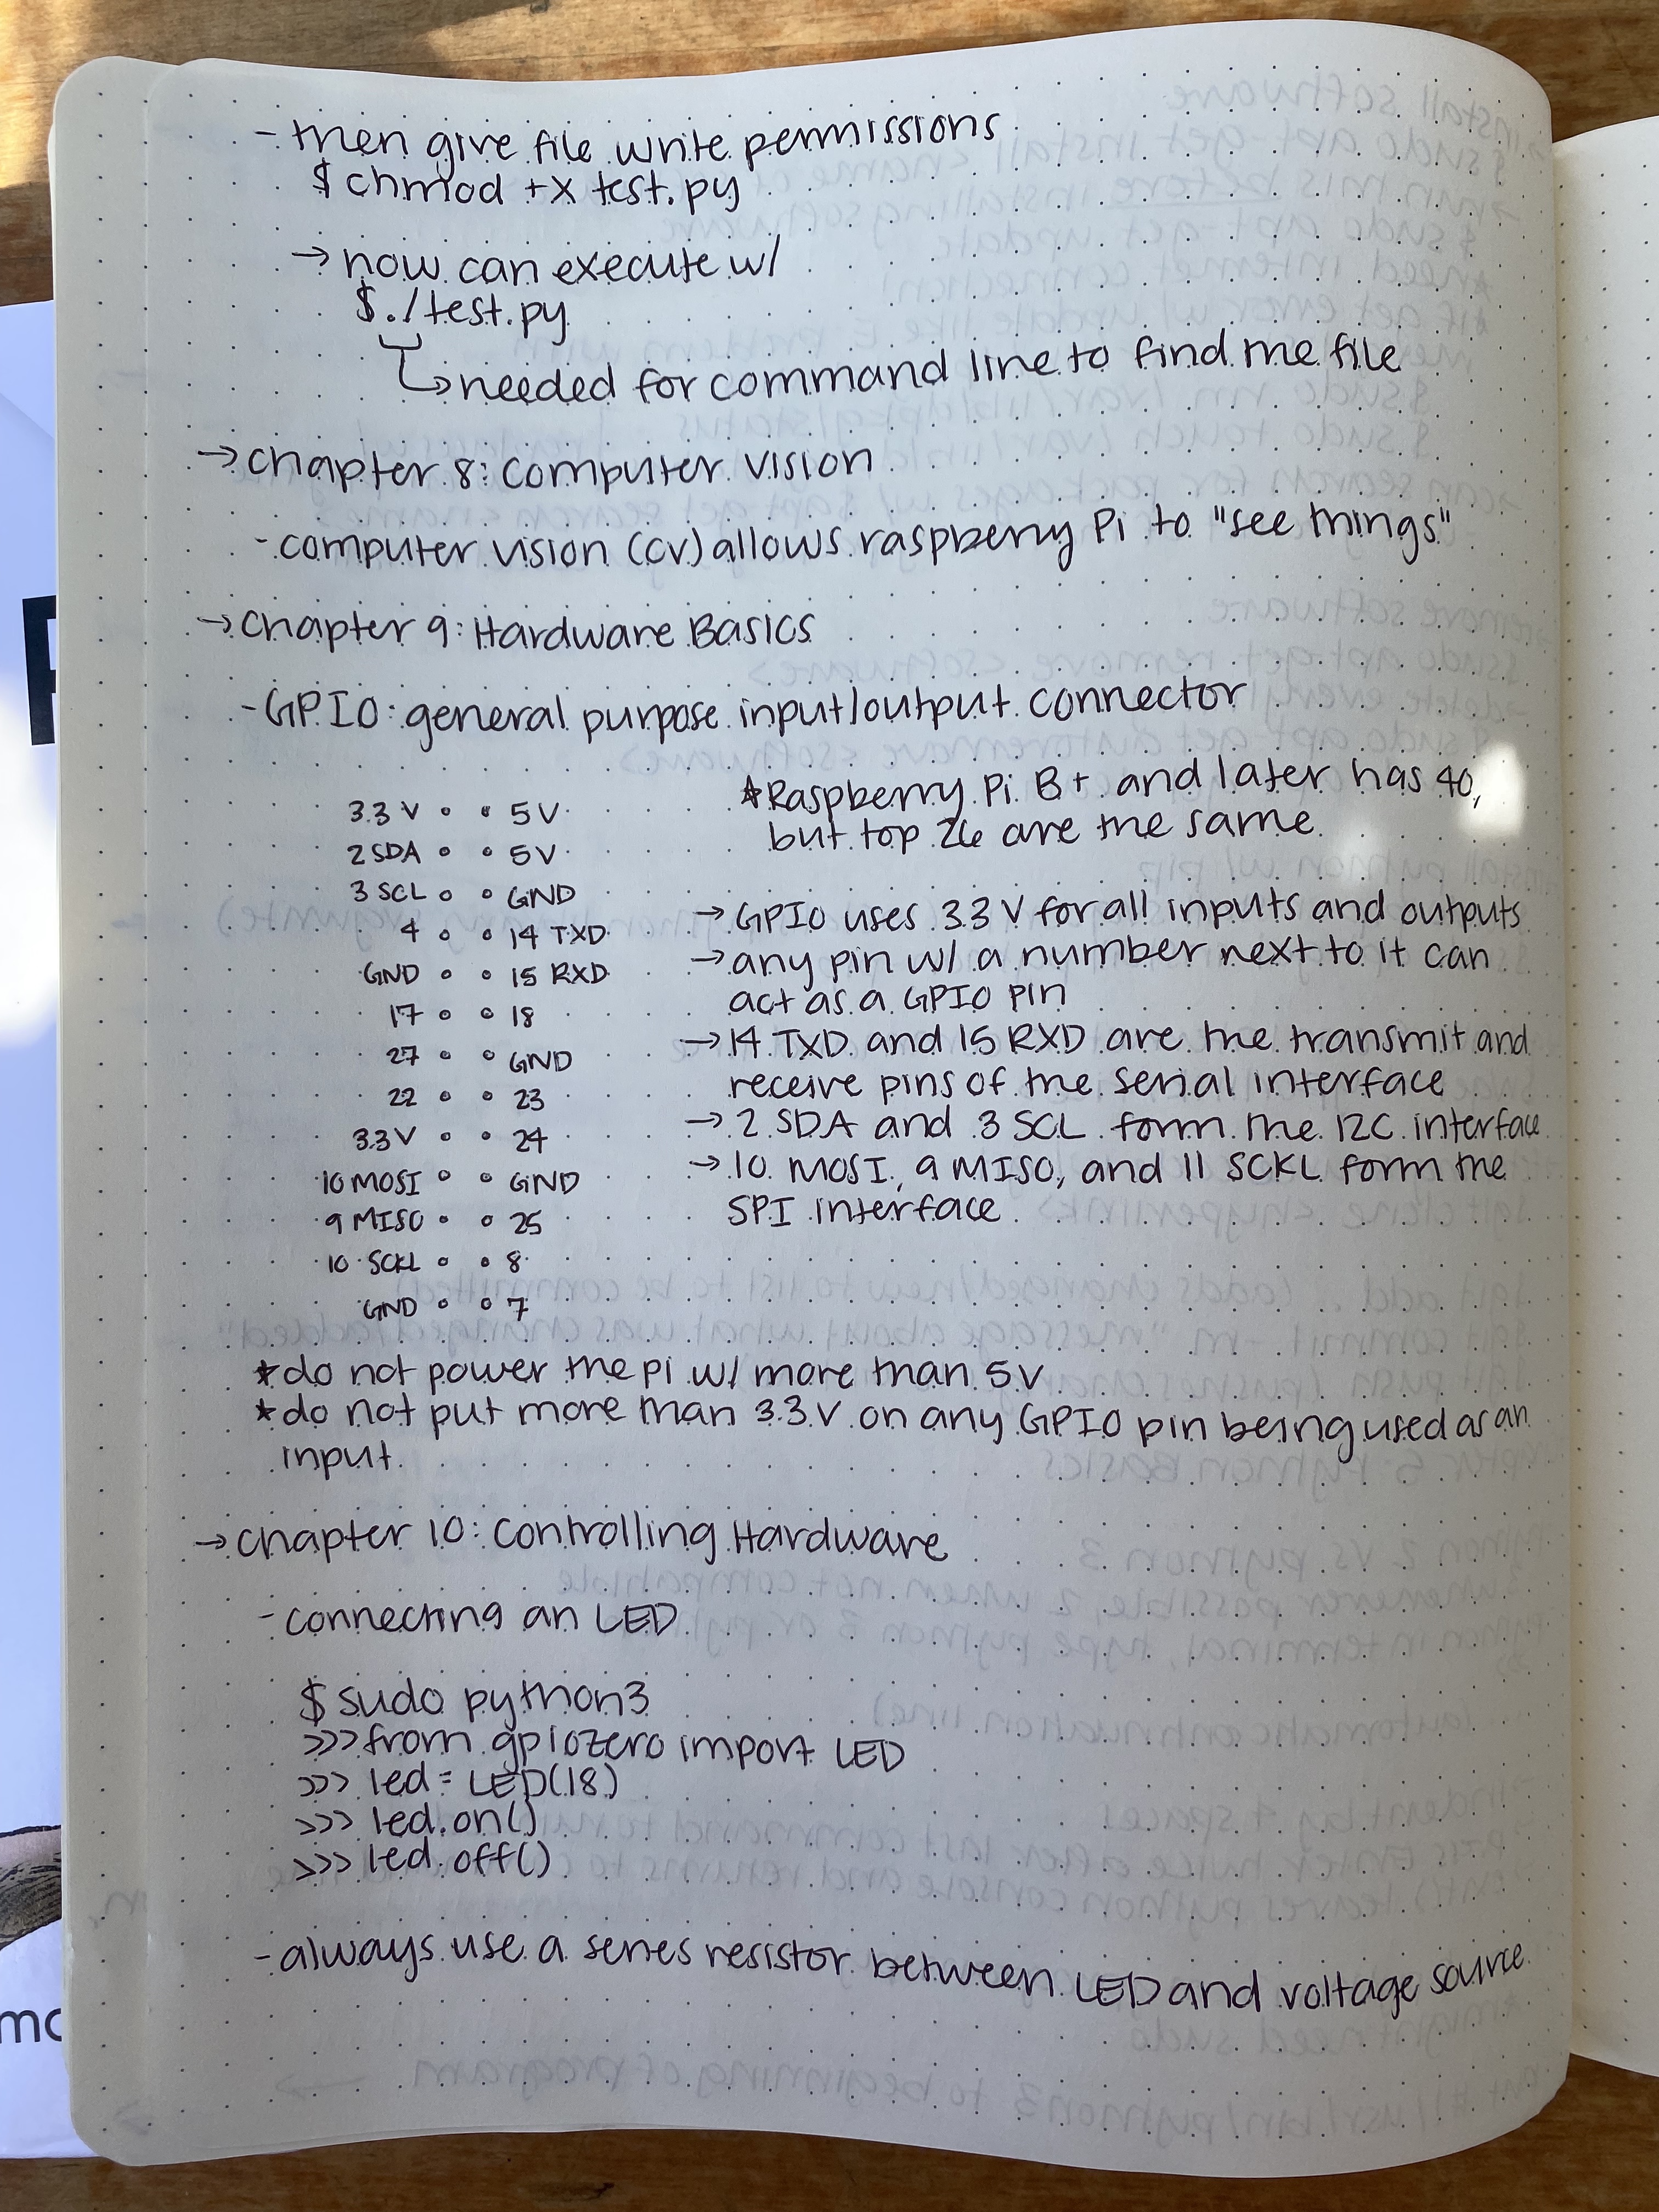 - then give file write permissions
$ chmod +x test.py
→ now can execute w/
$ ./test.py
↳ needed for command line to find the file
→ Chapter 8: Computer Vision
- computer vision (CV) allows raspberry Pi to "see things"
→ Chapter 9: Hardware Basics
- GPIO: general purpose input/output connector
* Raspberry Pi B+ and later has 40,
but top 26 are the same
3.3 V ○ ○ 5V
2 SDA ○ ○ 5V
3 SCL ○ ○ GND
4 ○ ○ 14 TXD
GND ○ ○ 15 RXD
17 ○ ○ 18
27 ○ ○ GND
22 ○ ○ 23
3.3V ○ ○ 24
10 MOSI ○ ○ GND
9 MISO ○ ○ 25
10 SCKL ○ ○ 8
GND ○ ○ 7
→ GPIO uses 3.3 V for all inputs and outputs
→ any pin w/ a number next to it can
act as a GPIO pin
→ 14 TXD and 15 RXD are the transmit and
receive pins of the serial interface
→ 2 SDA and 3 SCL form the I2C interface
→ 10 MOSI, 9 MISO, and 11 SCKL form the
SPI interface
* do not power the pi w/ more than 5V
* do not put more than 3.3V on any GPIO pin being used as an
input
→ Chapter 10: Controlling Hardware
- connecting an LED
$ sudo python3
>>> from gpiozero import LED
>>> led = LED(18)
>>> led.on()
>>> led.off()
- always use a series resistor between LED and voltage source